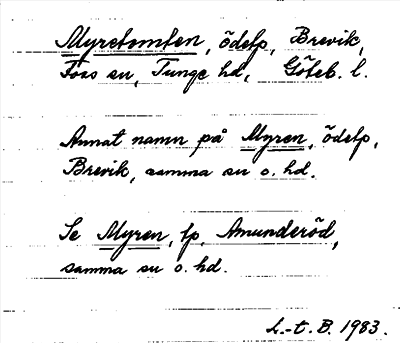 Myretomten, ödelp, Brevik,
Foss sn, Tunge hd, Göteb. l.
Annat namn på Myren, ödelp,
Brevik, samma sn o. hd.
Se Myren, lp, Amunderöd,
samma sn o. hd.
L.-t. B. 1983.